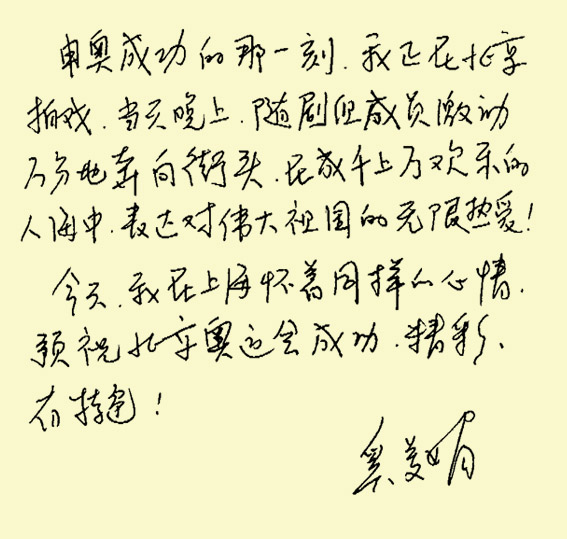 申奥成功的那一刻，我正在北京
拍戏，当天晚上，随剧组成员激动
万分地奔向街头，在成千上万欢乐的
人海中，表达对伟大祖国的无限热爱！
今天，我在上海怀着同样的心情，
预祝北京奥运会成功、精彩、
有特色！
奚美娟